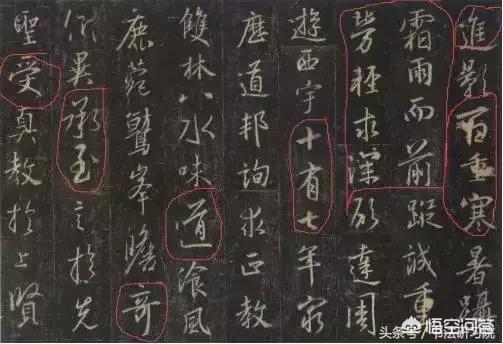 進影百重寒暑躡
霜雨而前蹤誠重
勞輕求深願達周
遊西宇十有七年窮
歷道邦詢求正教
雙林八水味道飡風
鹿菀鷲峯瞻奇
仰異承至言於先
聖受真教於上賢
头条号/书法研习院
悟空问答